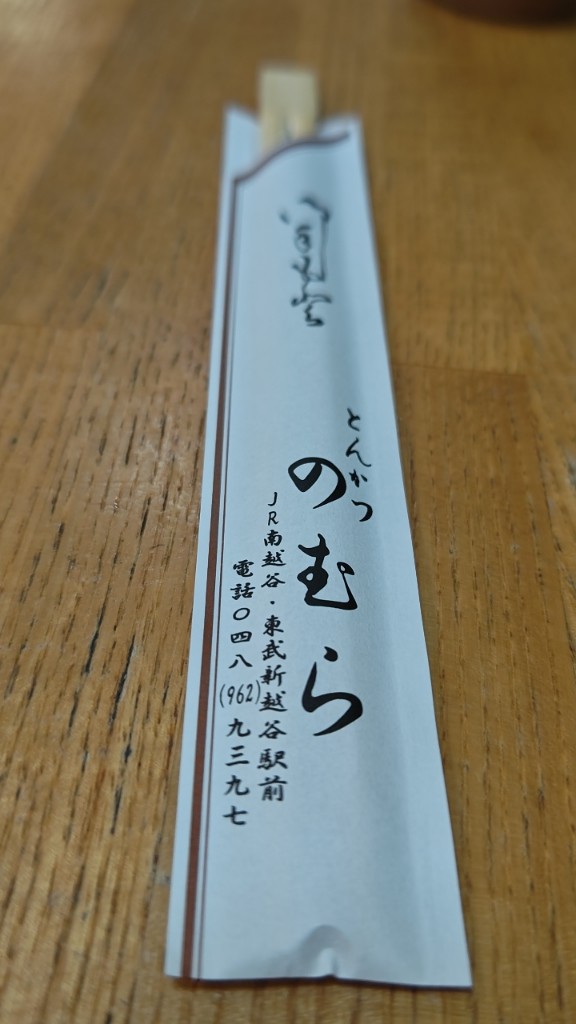 とんかつ
のむら
JR南越谷・東武新越谷駅前
電話〇四八(962)九三九七